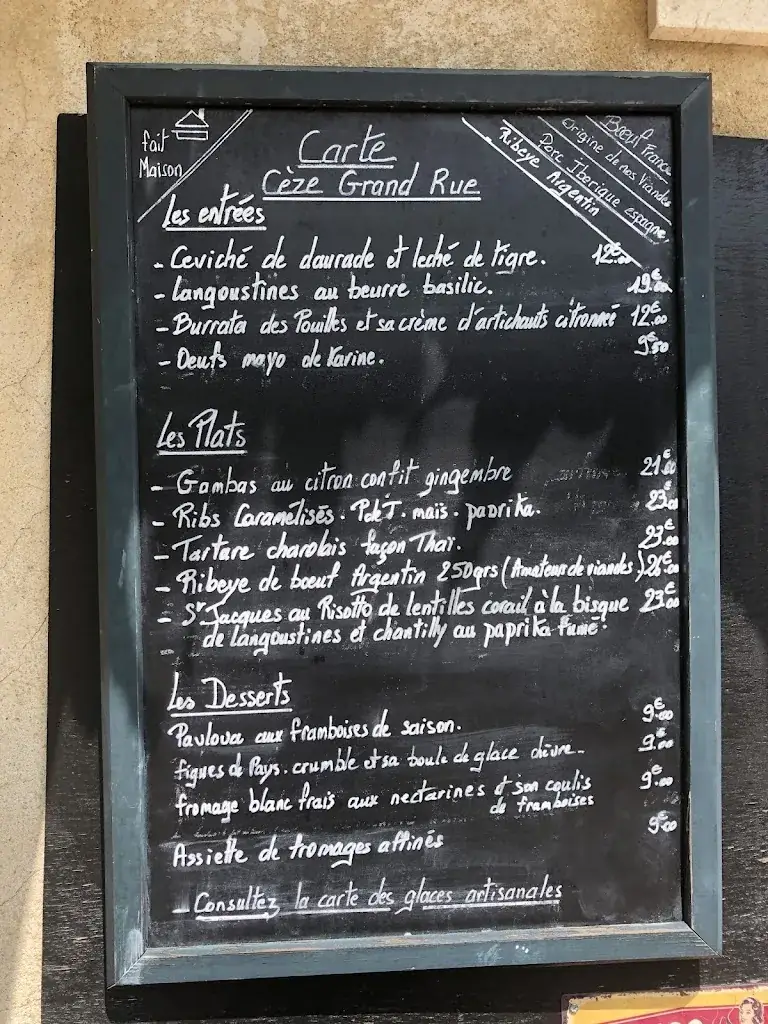 fait
Maison
Carte
Cèze Grand Rue
Bœuf France
Origine de nos Viandes
Porc Iberique espagne,
Ribeye Argentin
Les entrées
- Ceviché de daurade et leché de tigre. 12€.00
- Langoustines au beurre basilic. 19€.00
- Burrata des Pouilles et sa crème d'artichauts citronné 12€.00
- Oeufs mayo de Karine. 9€.50
Les Plats
- Gambas au citron confit gingembre 21€.00
- Ribs Caramélisés. PdeT. maïs. paprika. 23€.00
- Tartare charolais façon Thaï. 23€.00
- Ribeye de bœuf Argentin 250grs (Amateurs de viandes)
- St Jacques au Risotto de lentilles corail à la bisque 23€.00
de langoustines et chantilly au paprika fumé.
Les Desserts
Pavlova aux framboises de saison. 9€.00
figues de Pays. crumble et sa boule de glace chèvre.. 9€.00
fromage blanc frais aux nectarines et son coulis 9€.00
de framboises
Assiette de fromages affinés 9€.00
- Consultez la carte des glaces artisanales